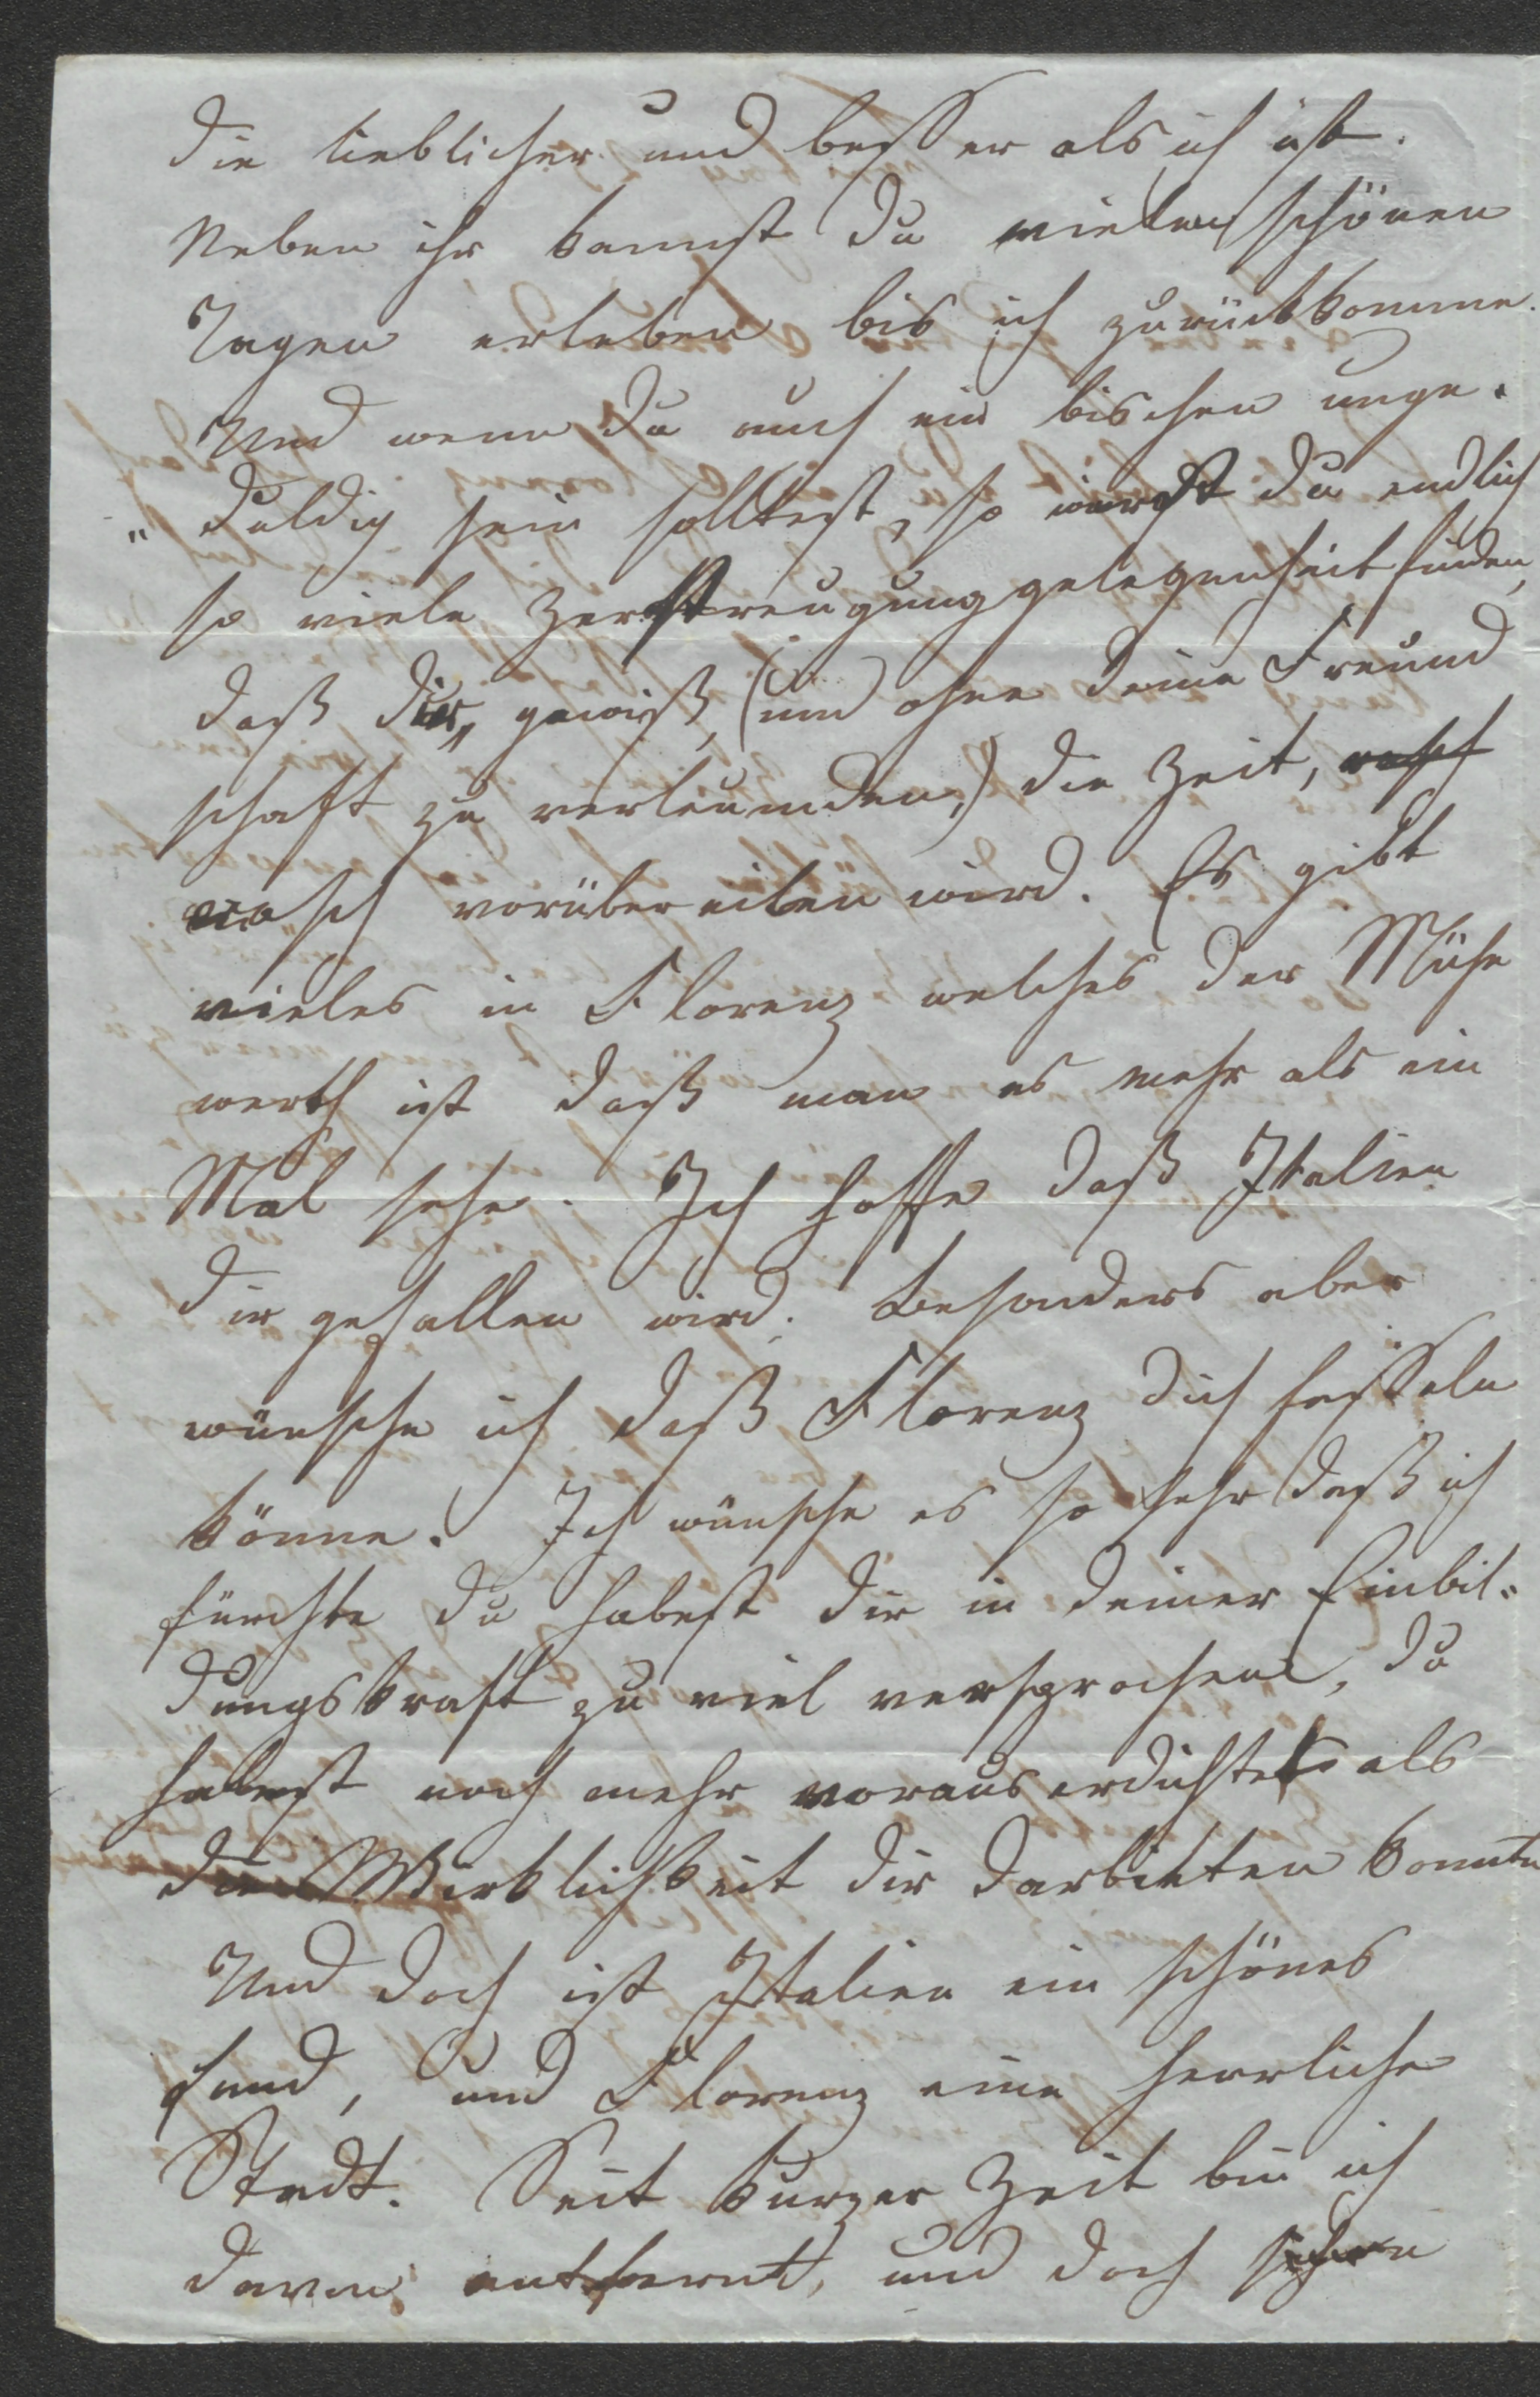 die lieblicher und besser als ich ist.
Neben ihr kannst du vielen schönen
Tagen erleben bis ich zurückkomme.
Und wenn du auch ein bischen unge-
"duldig sein solltest, so wirst du endlich
so viele Zerstreugung gelegenheit finden,
daß dir, gewiß, (und ohne deine Freund
schaft zu verleumden,) die Zeit, rasch
rasch vorübereilen wird. Es gibt
vieles in Florenz welches der Mühe
werth ist daß man es mehr als ein
Mal sehe. Ich hoffe daß Italien
dir gefallen wird. Besonders aber
wünsche ich daß Florenz dich fesseln
könne. Ich wünsche es so sehr daß ich
fürchte du habest dir in deiner Einbil-
dungskraft zu viel versprochen, du
habest noch mehr voraus erdichtet als
die Wirklichkeit dir darbieten konnte
Und doch ist Italien ein schönes
Land, und Florenz eine herrliche
Stadt. Seit kurzer Zeit bin ich
davon entfernt, und doch sehne